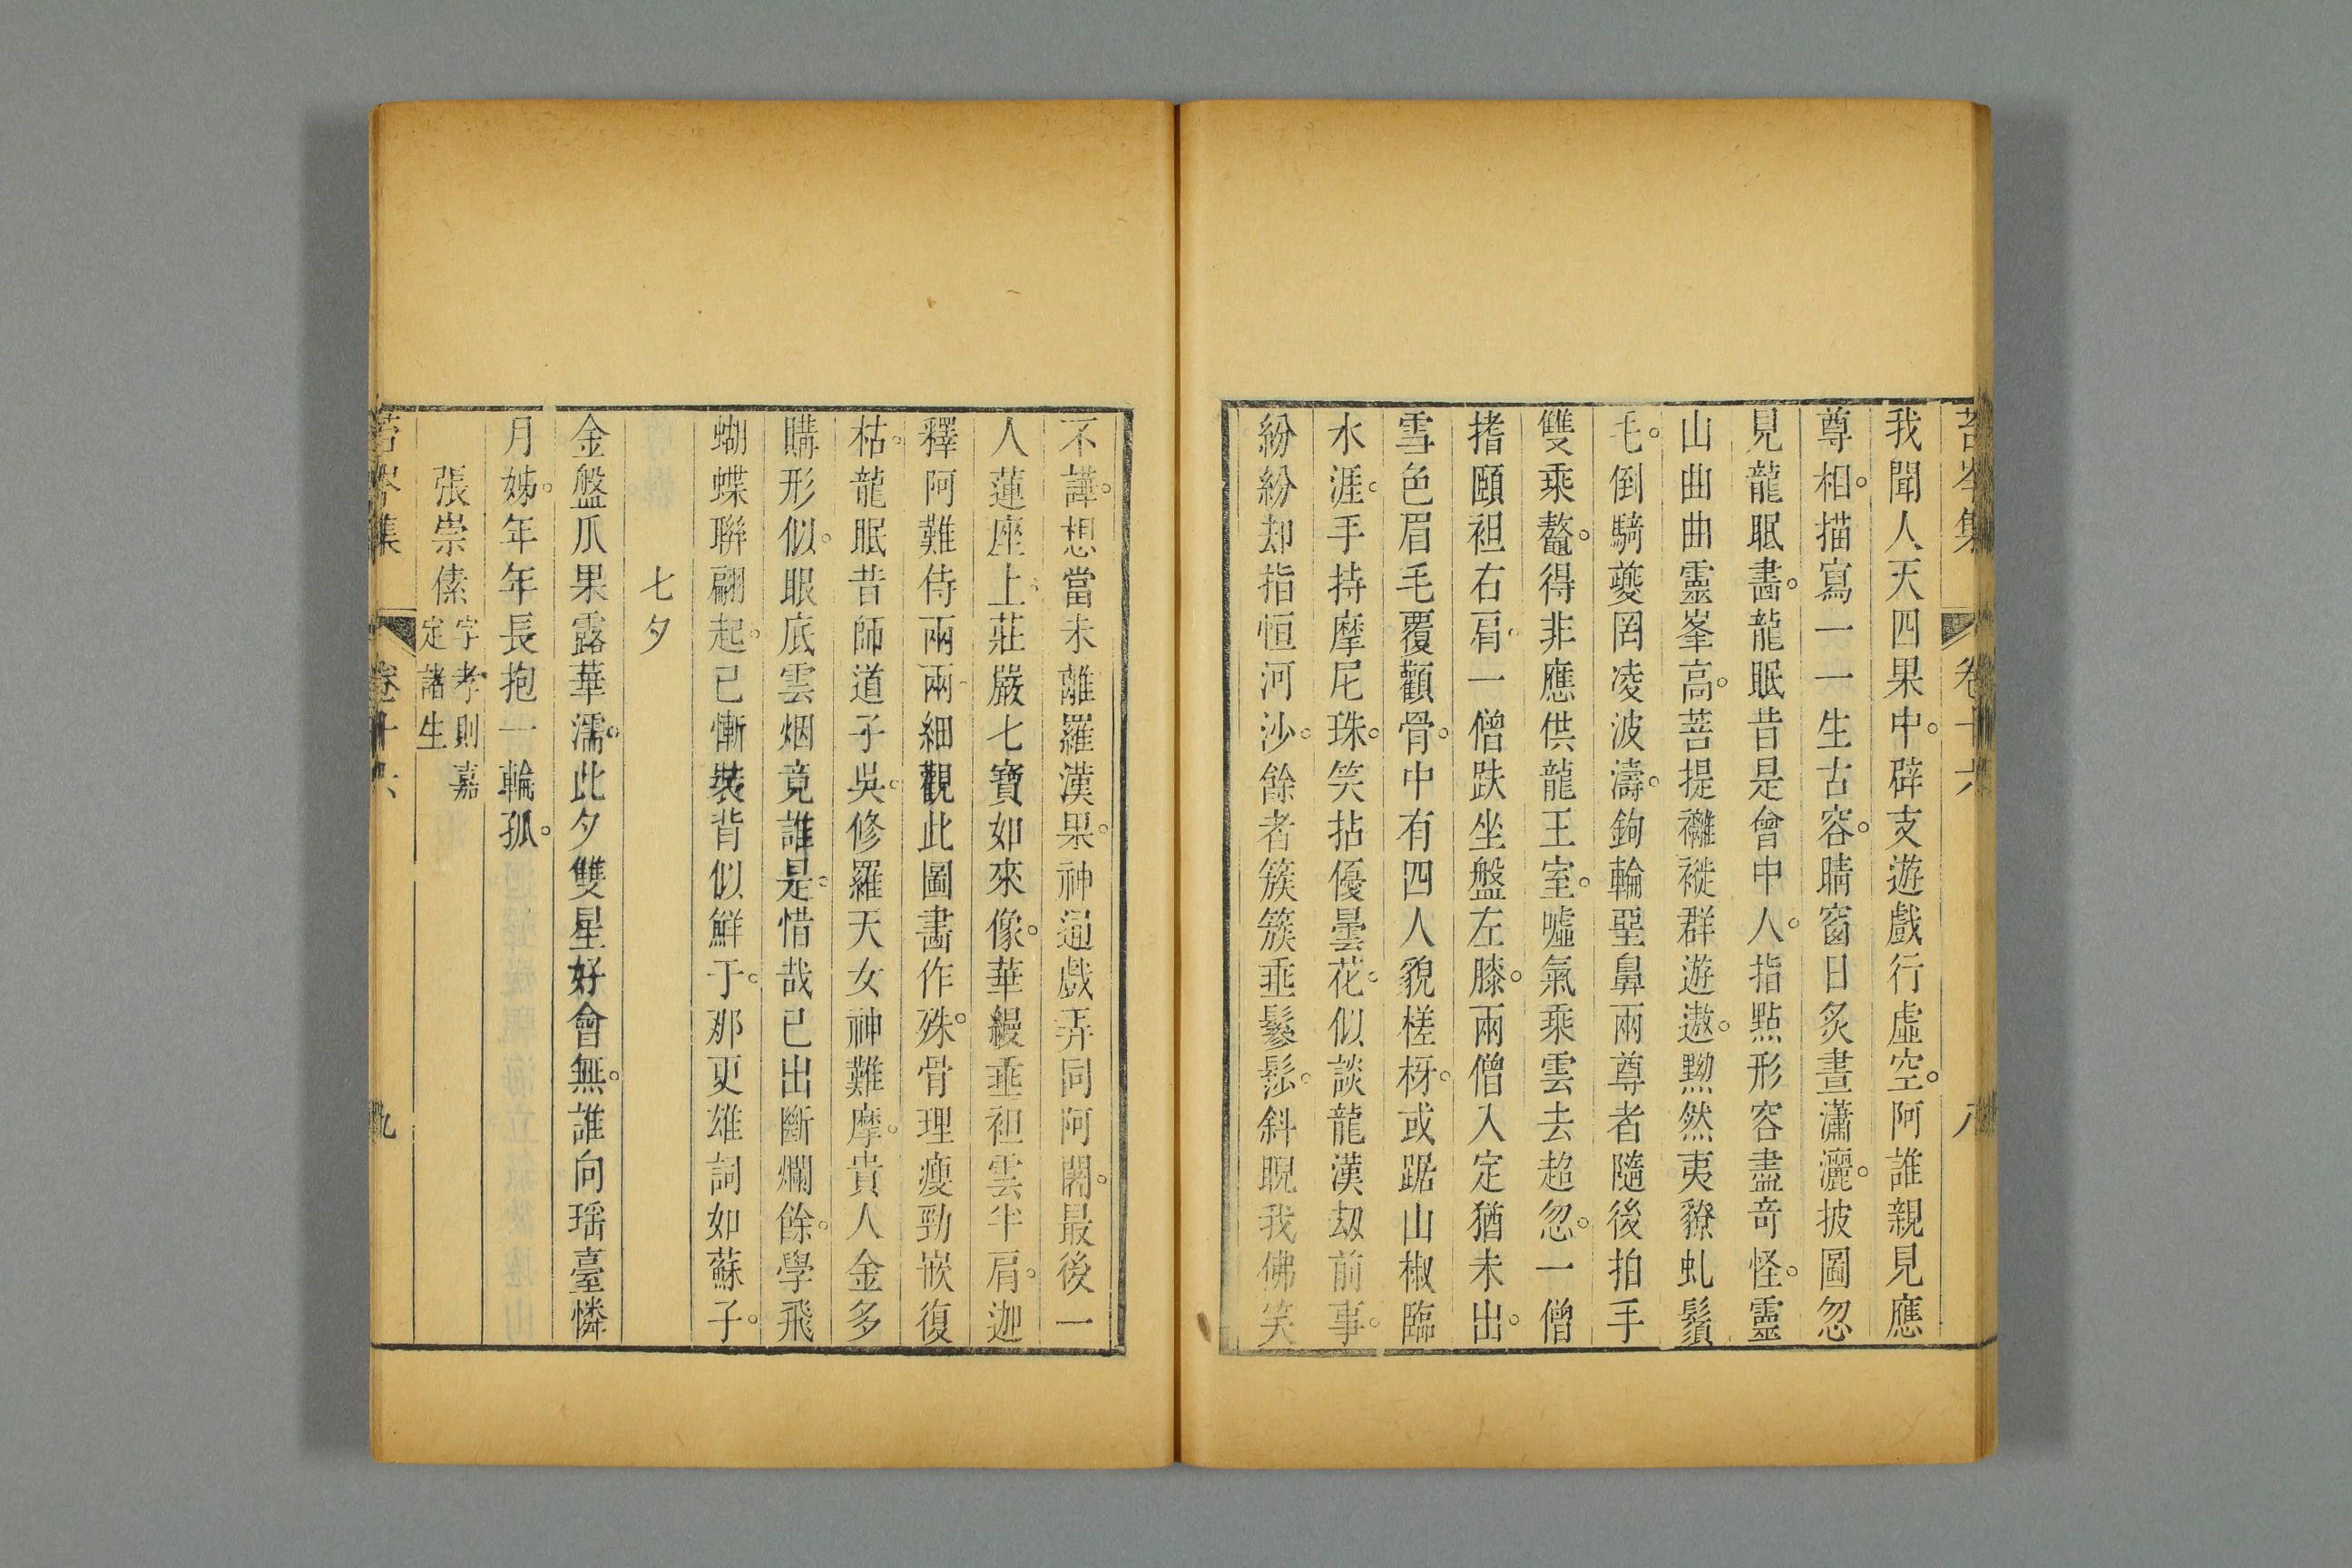 苔岑集 卷十六 八
我聞人天四果中。辟支遊戲行虛空。阿誰親見應
尊相。描寫一一生古容。晴窗日炙晝瀟灑。披圖忽
見龍眠畵。龍眠昔是會中人。指點形容盡奇怪。靈
山曲曲靈峯高。菩提襹褷群遊遨。黝然夷獠虬鬚
毛。倒騎夔罔凌波濤。鉤輪堊鼻兩尊者隨後拍手
雙乘鼇。得非應供龍王室。噓氣乘雲去超忽。一僧
搘頤袒右肩。一僧趺坐盤左膝。兩僧入定猶未出。
雪色眉毛覆顴骨。中有四人貌槎枒。或踞山椒臨
水涯。手持摩尼珠。笑拈優曇花。似談龍漢刼前事。
紛紛却指恒河沙。餘者簇簇垂鬖髿。斜睨我佛笑
不譁。想當未離羅漢果。神通戲弄同阿閦。最後一
人蓮座上。莊嚴七寶如來像。華縵垂袒雲半肩。迦
釋阿難侍兩兩。細觀此圖畵作殊。骨理瘦勁嵌復
枯。龍眠昔師道子吳。修羅天女神難摩。貴人金多
購形似。眼底雲烟竟誰是。惜哉已出斷爛餘。學飛
蝴蝶聯翩起。已慚裝背似鮮于。那更雄詞如蘇子。
七夕
金盤爪果露華濡。此夕雙星好會無。誰向瑤臺憐
月姊。年年長抱一輪孤。
張崇傃 字孝則嘉
定諸生
苔岑集 卷十六 九